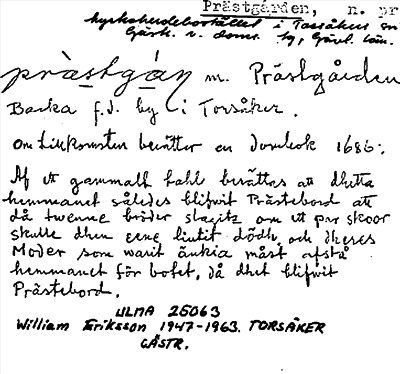 Prästgården, n. pr
kyrkoherdebostället i Torsåkers sn
Gästr. v. doms. hg, Gävl. län.
pràstgáṇ m. Prästgården
Backa f.d. by i Torsåker.
Om tillkomsten berätter en dombok 1686:
Af ett gammalt tahl berättas att dhetta
hemmanet således blifwit Prästebord att
då twenne bröder slagitz om ett par skoor
skulle dhen eene liutit dödh, och dheres
Moder som warit änkia måst afstå
hemmanet för botet, då dhet blifwit
Prästebord.
ULMA 25063
William Eriksson 1947-1963. TORSÅKER
GÄSTR.